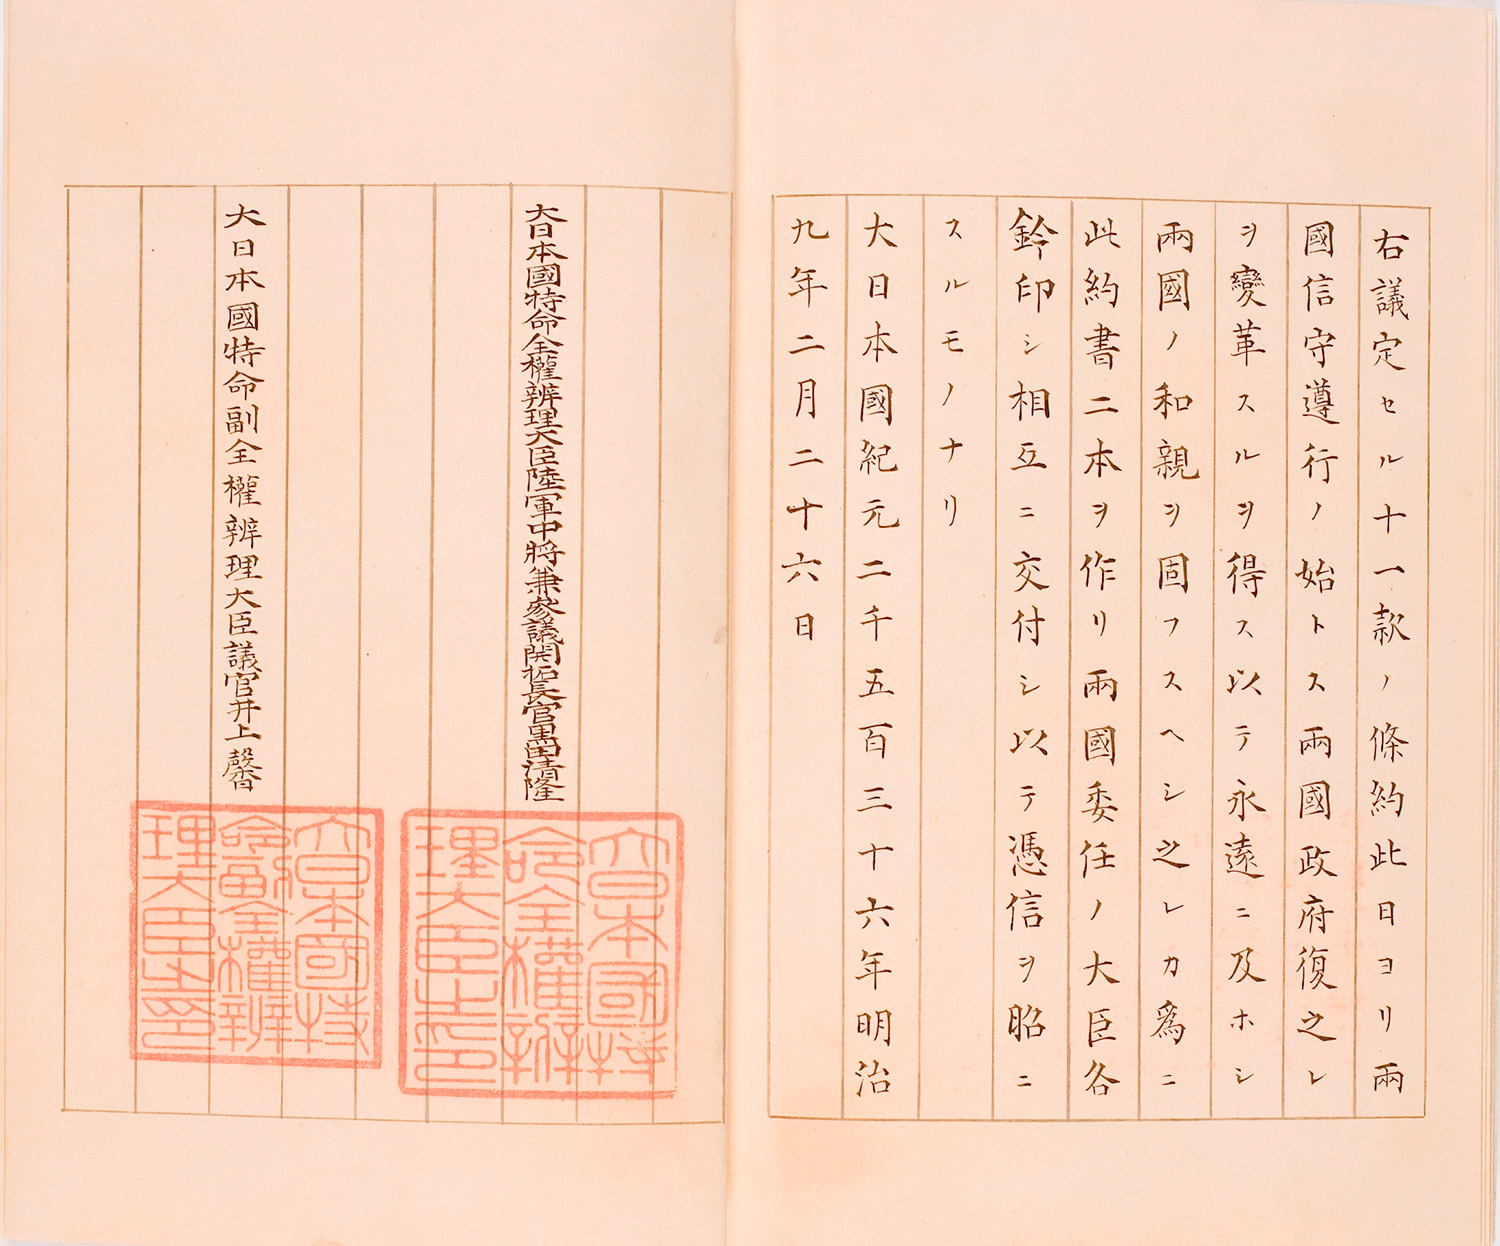 右議定セル十一款ノ條約此日ヨリ兩
國信守遵行ノ始トス兩國政府復之レ
ヲ變革スルヲ得ス以テ永遠ニ及ホシ
兩國ノ和親ヲ固フスヘシ之レカ爲ニ
此約書二本ヲ作リ兩國委任ノ大臣各
鈐印シ相互ニ交付シ以テ憑信ヲ昭ニ
スルモノナリ
大日本國紀元二千五百三十六年明治
九年二月二十六日
大日本國特命全權辨理大臣陸軍中將兼參議開拓長官黑田清隆
大日本國特命副全權辨理大臣議官井上馨
大日本國特
命全權辦
理大臣之印
大日本國特
命副全權辦
理大臣之印